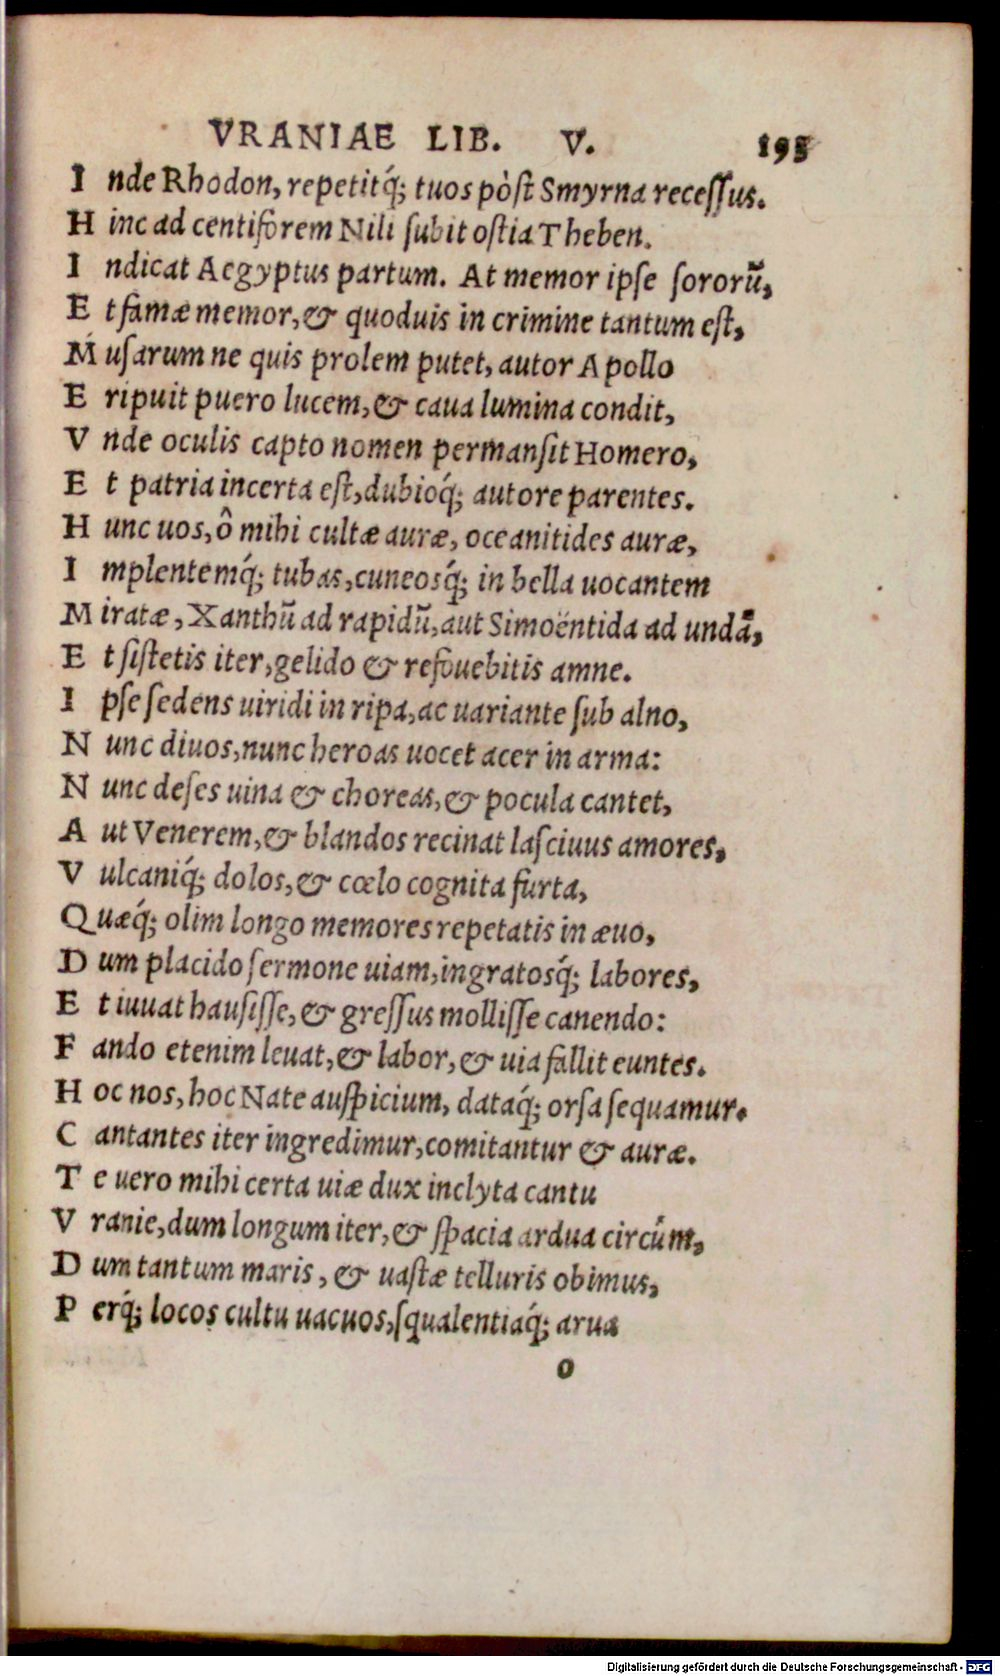 VRANIAE LIB. V. 195
I nde Rhodon, repetitq́; tuos pòſt Smyrna receſſus.
H inc ad centiforem Nili ſubit oſtia Theben.
I ndicat Aegyptus partum. At memor ipſe ſororũ,
E t famæ memor, & quoduis in crimine tantum eſt,
M uſarum ne quis prolem putet, autor Apollo
E ripuit puero lucem, & caua lumina condit,
V nde oculis capto nomen permanſit Homero,
E t patria incerta eſt, dubioq́; autore parentes.
H unc uos, ô mihi cultæ auræ, oceanitides auræ,
I mplentemq́; tubas, cuneosq́; in bella uocantem
M iratæ, Xanthũ ad rapidũ, aut Simoëntida ad undã,
E t ſiſtetis iter, gelido & refouebitis amne.
I pſe ſedens uiridi in ripa, ac uariante ſub alno,
N unc diuos, nunc heroas uocet acer in arma:
N unc deſes uina & choreas, & pocula cantet,
A ut Venerem, & blandos recinat laſciuus amores,
V ulcaniq́; dolos, & cœlo cognita furta,
Q uæq́; olim longo memores repetatis in æuo,
D um placido ſermone uiam, ingratosq́; labores,
E t iuuat hauſiſſe, & greſſus molliſſe canendo:
F ando etenim leuat, & labor, & uia fallit euntes.
H oc nos, hoc Nate auſpicium, dataq́; orſa ſequamur.
C antantes iter ingredimur, comitantur & auræ.
T e uero mihi certa uiæ dux inclyta cantu
V ranie, dum longum iter, & ſpacia ardua circúm,
D um tantum maris, & uaſtæ telluris obimus,
P erq́; locos cultu uacuos, ſqualentiaq́; arua
o
Digitalisierung gefördert durch die Deutsche Forschungsgemeinschaft - DFG